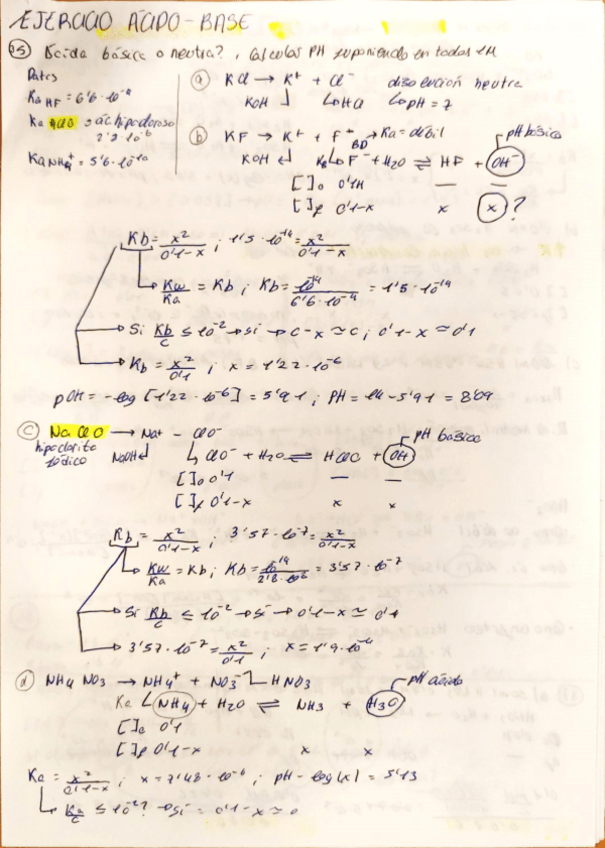 EJERCICIO ÁCIDO-BASE
35 Ácida básica o neutra?, Calculas PH suponiendo en todas 1M
Datos
Ka HF = 6'6·10⁻⁴
Ka HClO = ác hipocloroso
2'8·10⁻⁸
Ka NH4⁺ = 5'6·10⁻¹⁰
a) KCl → K⁺ + Cl⁻ disolución neutra
KOH HCl pH = 7
b) KF → K⁺ + F⁻ → Ka = débil pH básico
BD
KOH Kb F⁻ + H2O ⇌ HF + OH⁻
[ ]o 0'1M — —
[ ]f 0'1-x x x ?
Kb = x²/0'1-x ; 1'5·10⁻¹⁴ = x²/0'1-x
Kw/Ka = Kb ; Kb = 10⁻¹⁴/6'6·10⁻⁴ = 1'5·10⁻¹⁴
Si Kb/C ≤ 10⁻² → si → C-x ≃ C ; 0'1-x ≃ 0'1
Kb = x²/0'1 ; x = 1'22·10⁻⁶
pOH = -log [1'22·10⁻⁶] = 5'91 ; PH = 14 - 5'91 = 8'09
c) NaClO → Na⁺ - ClO⁻ pH básico
hipoclorito sódico NaOH ClO⁻ + H2O ⇌ HClO + OH⁻
[ ]o 0'1 — —
[ ]f 0'1-x x x
Kb = x²/0'1-x ; 3'57·10⁻⁷ = x²/0'1-x
Kw/Ka = Kb ; Kb = 10⁻¹⁴/2'8·10⁻⁸ = 3'57·10⁻⁷
Si Kb/C ≤ 10⁻² → si → 0'1-x ≃ 0'1
3'57·10⁻⁷ = x²/0'1 ; x = 1'9·10⁻⁴
d) NH4NO3 → NH4⁺ + NO3⁻ HNO3 pH ácido
Ka NH4 + H2O ⇌ NH3 + H3O
[ ]o 0'1
[ ]f 0'1-x x x
Ka = x²/0'1-x ; x = 7'48·10⁻⁶ ; pH - log(x) = 5'13
Ka/C ≤ 10⁻²? → Si = 0'1-x ≃ 0